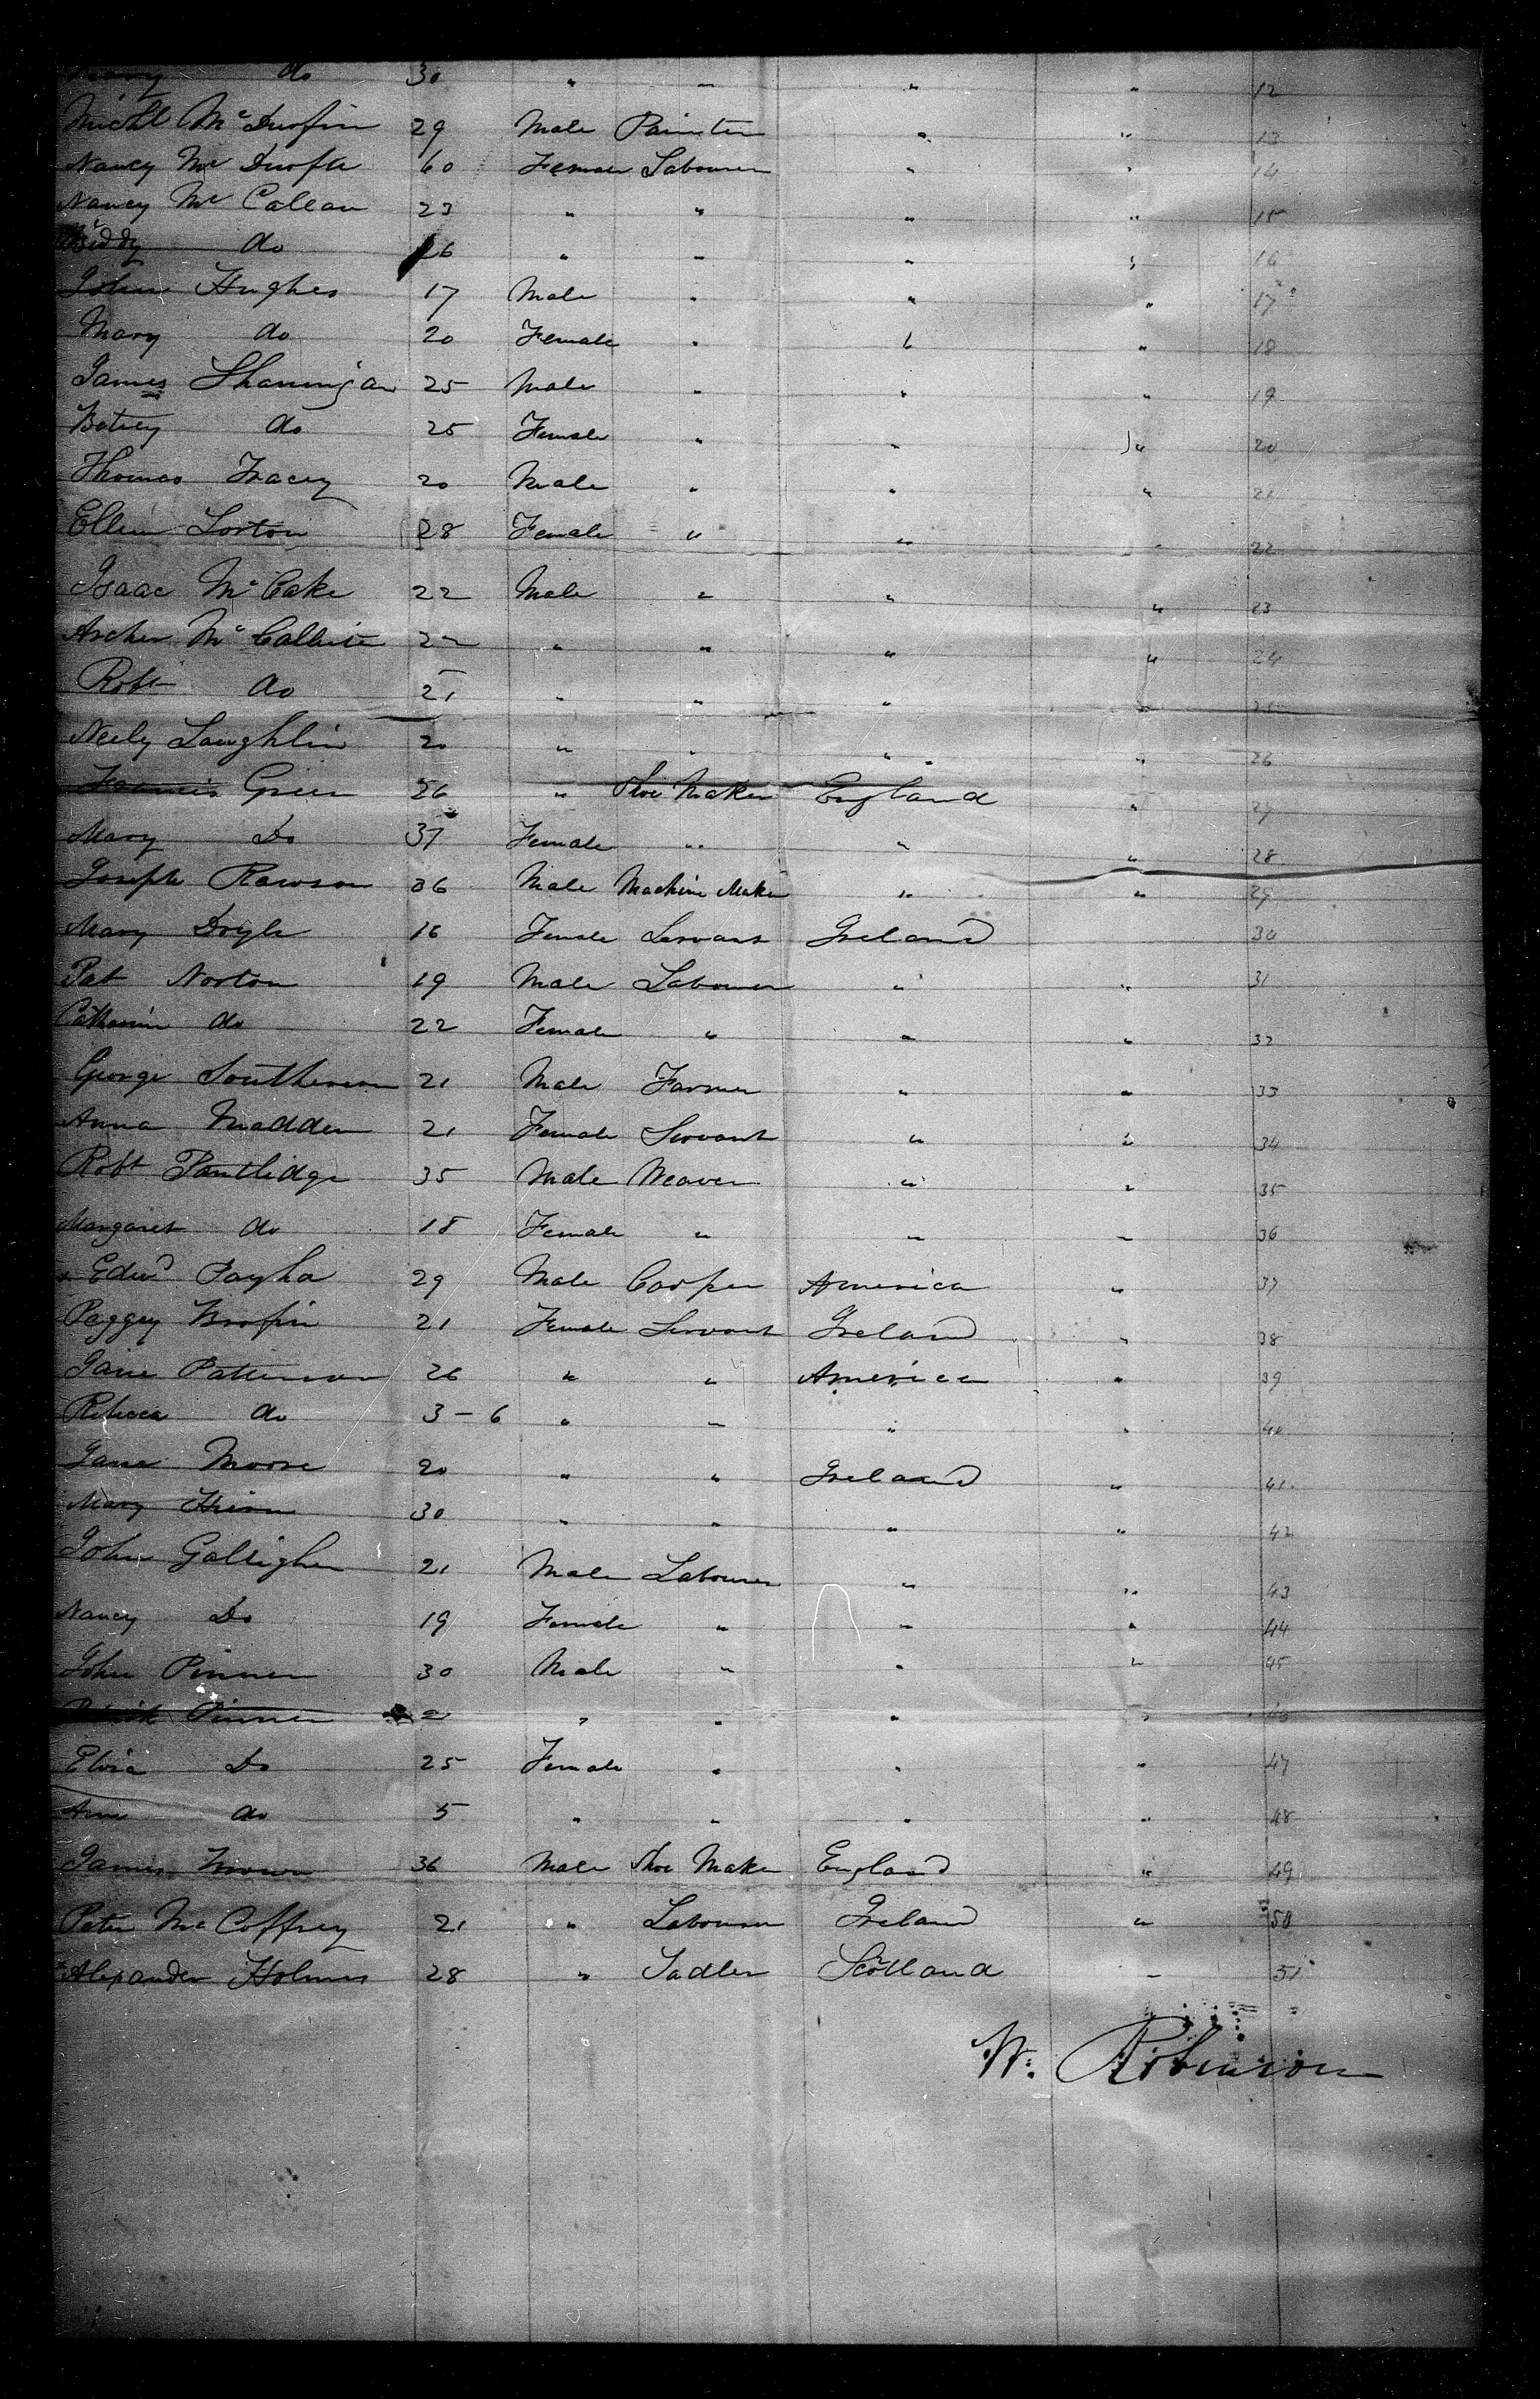 Mary do 30 " " " " 12
Michl McDuofin 29 Male Painter " " 13
Nancy Mc Duofte 60 Female Labourer " " 14
Nancy Mc Callan 23 " " " " 15
Biddy do 26 " " " " 16
John Hughes 17 Male " " " 17
Mary do 20 Female " " " 18
James Shannigan 25 Male " " " 19
Betsey do 25 Female " " " 20
Thomas Tracey 20 Male " " " 21
Ellen Lorton 28 Female " " " 22
Isaac Mc Cake 22 Male " " " 23
Archer Mc 22 " " " " 24
Robt do 21 " " " " 25
Neely Laughlin 20 " " " " 26
Francis Green 26 " Shoe Maker England "
Mary Do 37 Female " " " 28
Joseph Rawson 36 Male Machine Maker " " 29
Mary Doyle 16 Female Servant Ireland 30
Pat Norton 19 Male Labourer " " 31
Catherin do 22 Female " " " 32
George Southeron 21 Male Farmer " " 33
Anna Madden 21 Female Servant " " 34
Robt Pantlidge 35 Male Weaver " " 35
Margaret do 18 Female " " " 36
Edwd Fayha 29 Male Cooper America " 37
Peggy Brofin 21 Female Servant Ireland " 38
Jane Patterson 26 " " America " 39
Rebecca do 3 - 6 " " " " 40
Jane Moore 20 " " Ireland " 41
Mary 30 " " " " 42
John Galligher 21 Male Labourer " " 43
Nancy Do 19 Female " " " 44
John Pinner 30 Male " " " 45
Pinner " " " "
Eliza Do 25 Female " " " 47
Ann do 5 " " " " 48
James Brown 36 Male Shoe Maker England " 49
Peter Mc Coffrey 21 " Labourer Ireland " 50
Alexander Holmes 28 " Sadler Scotland " 51
W. Robinson